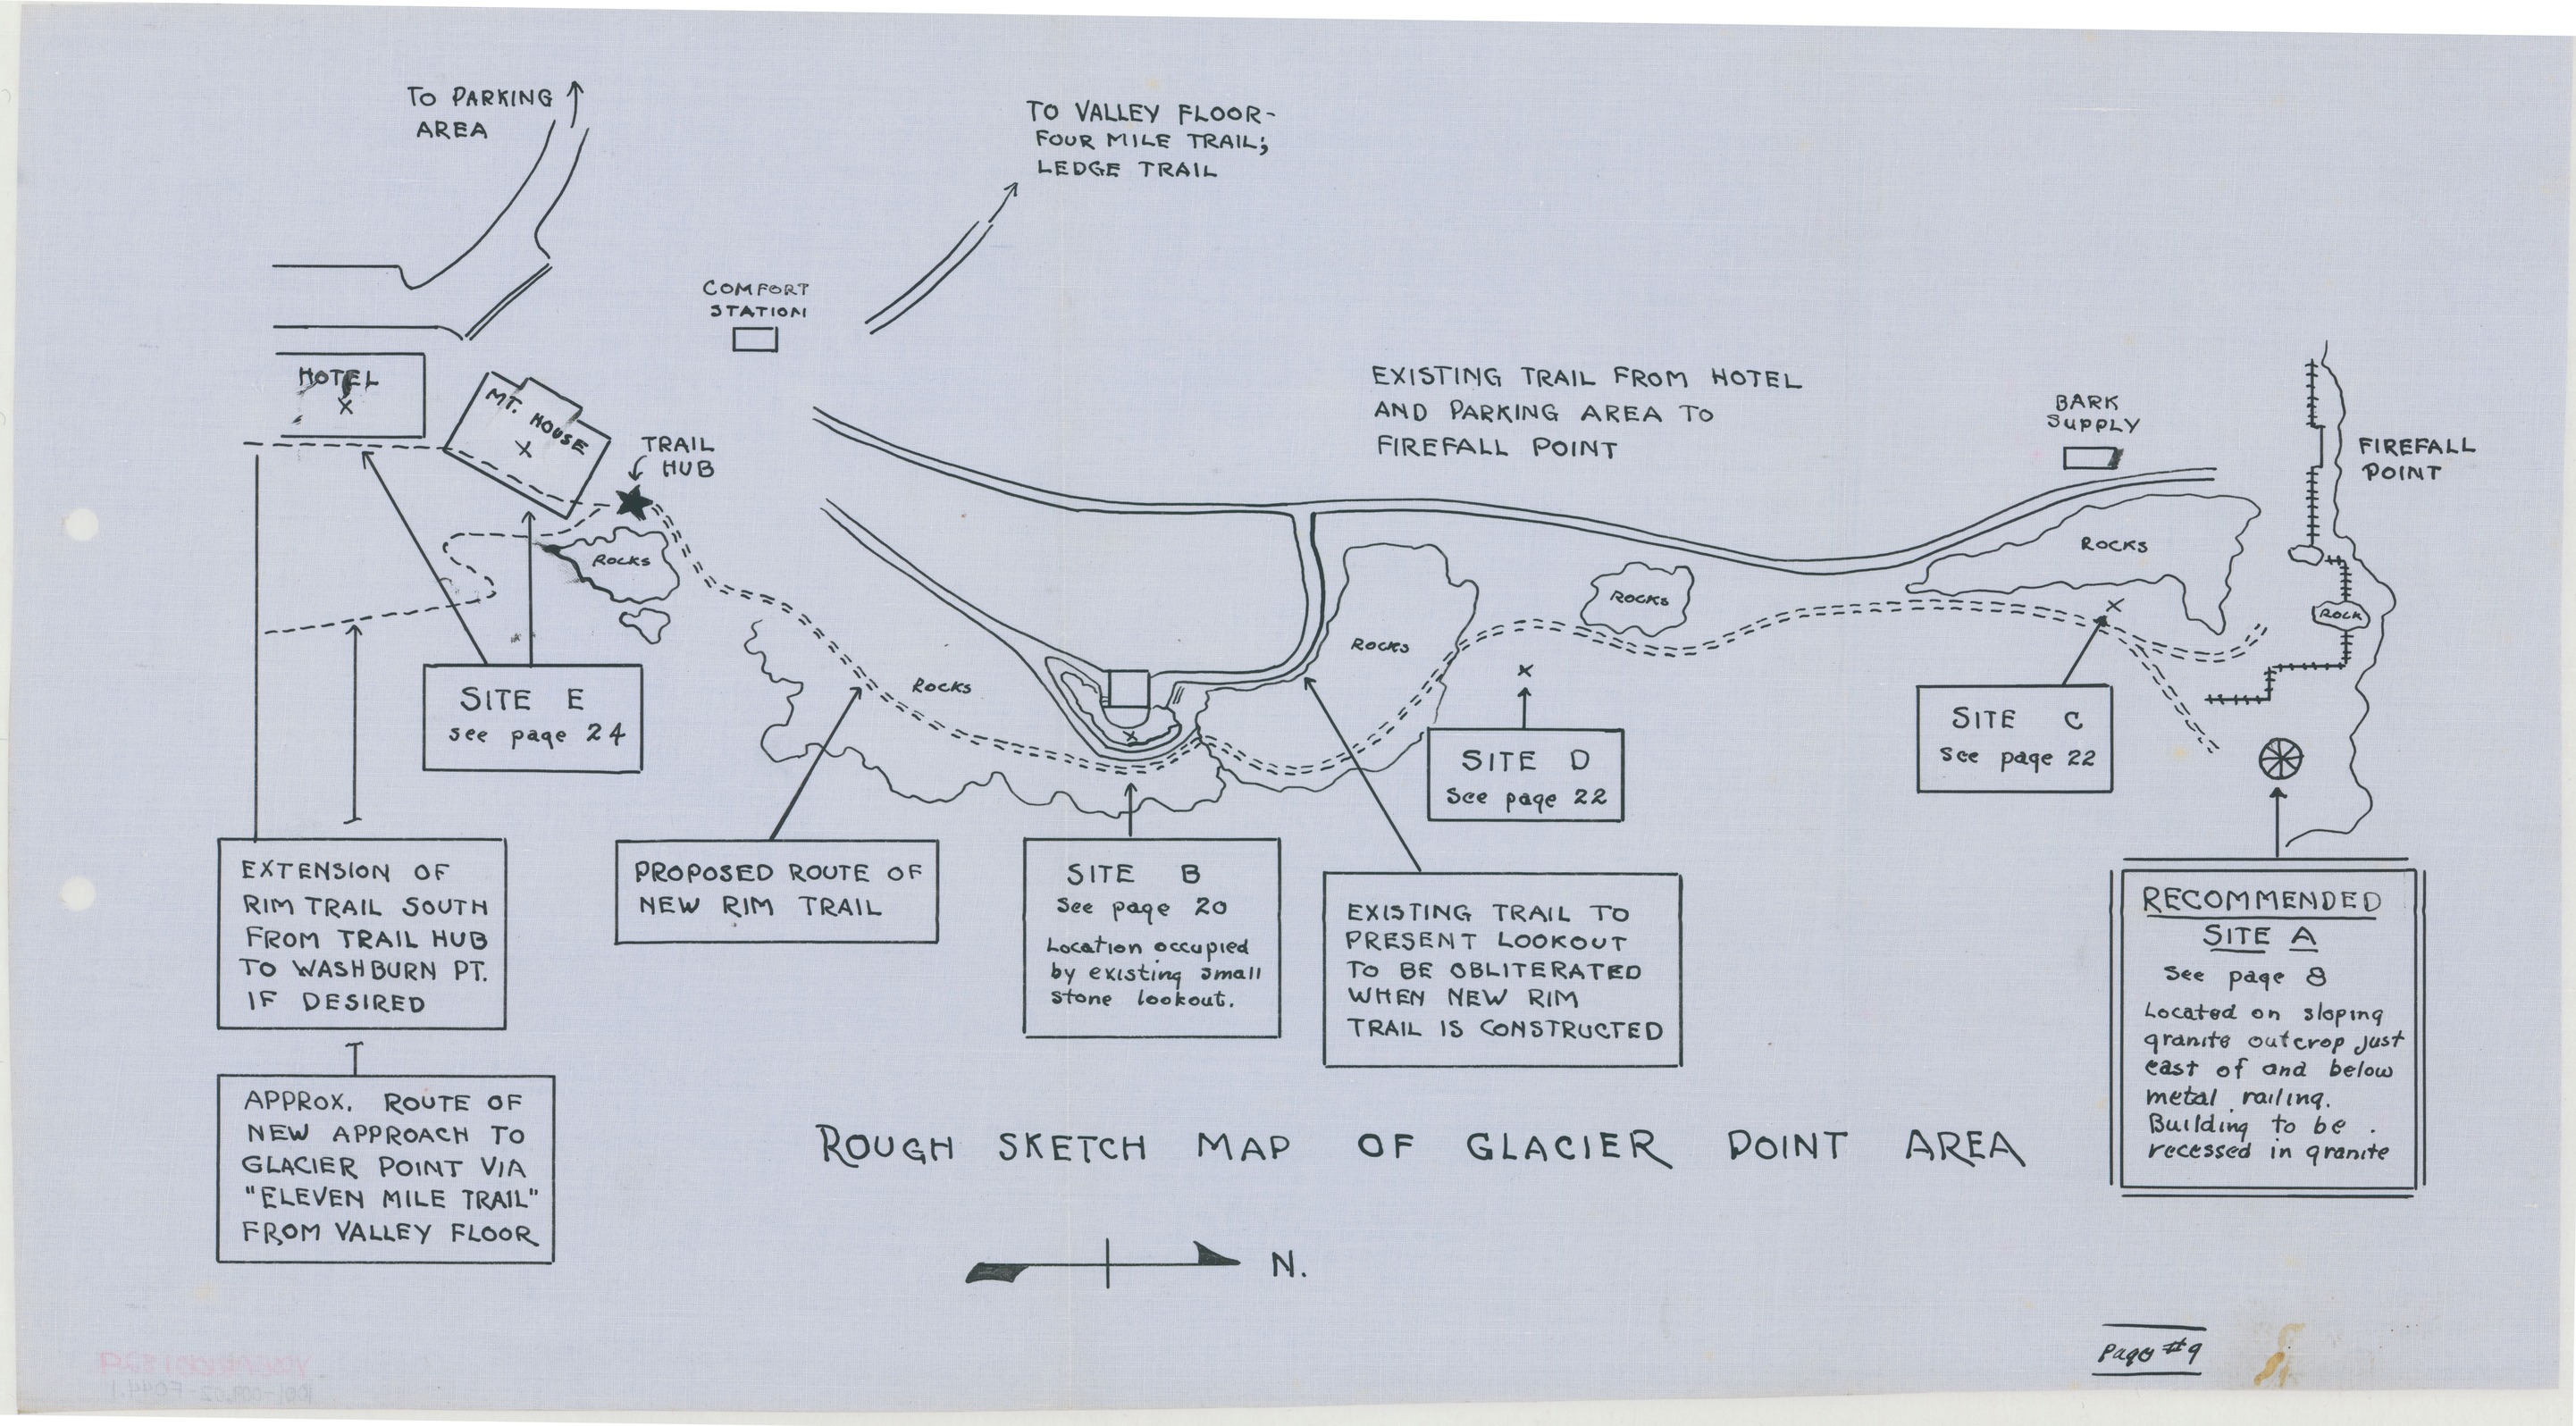 TO PARKING
AREA
TO VALLEY FLOOR-
FOUR MILE TRAIL;
LEDGE TRAIL
COMFORT
STATION
HOTEL
X
MT. HOUSE
X
TRAIL
HUB
EXISTING TRAIL FROM HOTEL
AND PARKING AREA TO
FIREFALL POINT
BARK
SUPPLY
FIREFALL
POINT
ROCKS
ROCKS
ROCKS
ROCKS
ROCKS
ROCK
X
X
X
SITE E
see page 24
SITE D
See page 22
SITE C
See page 22
EXTENSION OF
RIM TRAIL SOUTH
FROM TRAIL HUB
TO WASHBURN PT.
IF DESIRED
PROPOSED ROUTE OF
NEW RIM TRAIL
SITE B
See page 20
Location occupied
by existing small
stone lookout.
EXISTING TRAIL TO
PRESENT LOOKOUT
TO BE OBLITERATED
WHEN NEW RIM
TRAIL IS CONSTRUCTED
RECOMMENDED
SITE A
See page 8
Located on sloping
granite outcrop just
east of and below
metal railing.
Building to be.
recessed in granite
APPROX. ROUTE OF
NEW APPROACH TO
GLACIER POINT VIA
"ELEVEN MILE TRAIL"
FROM VALLEY FLOOR
ROUGH SKETCH MAP OF GLACIER POINT AREA
N.
Page #9